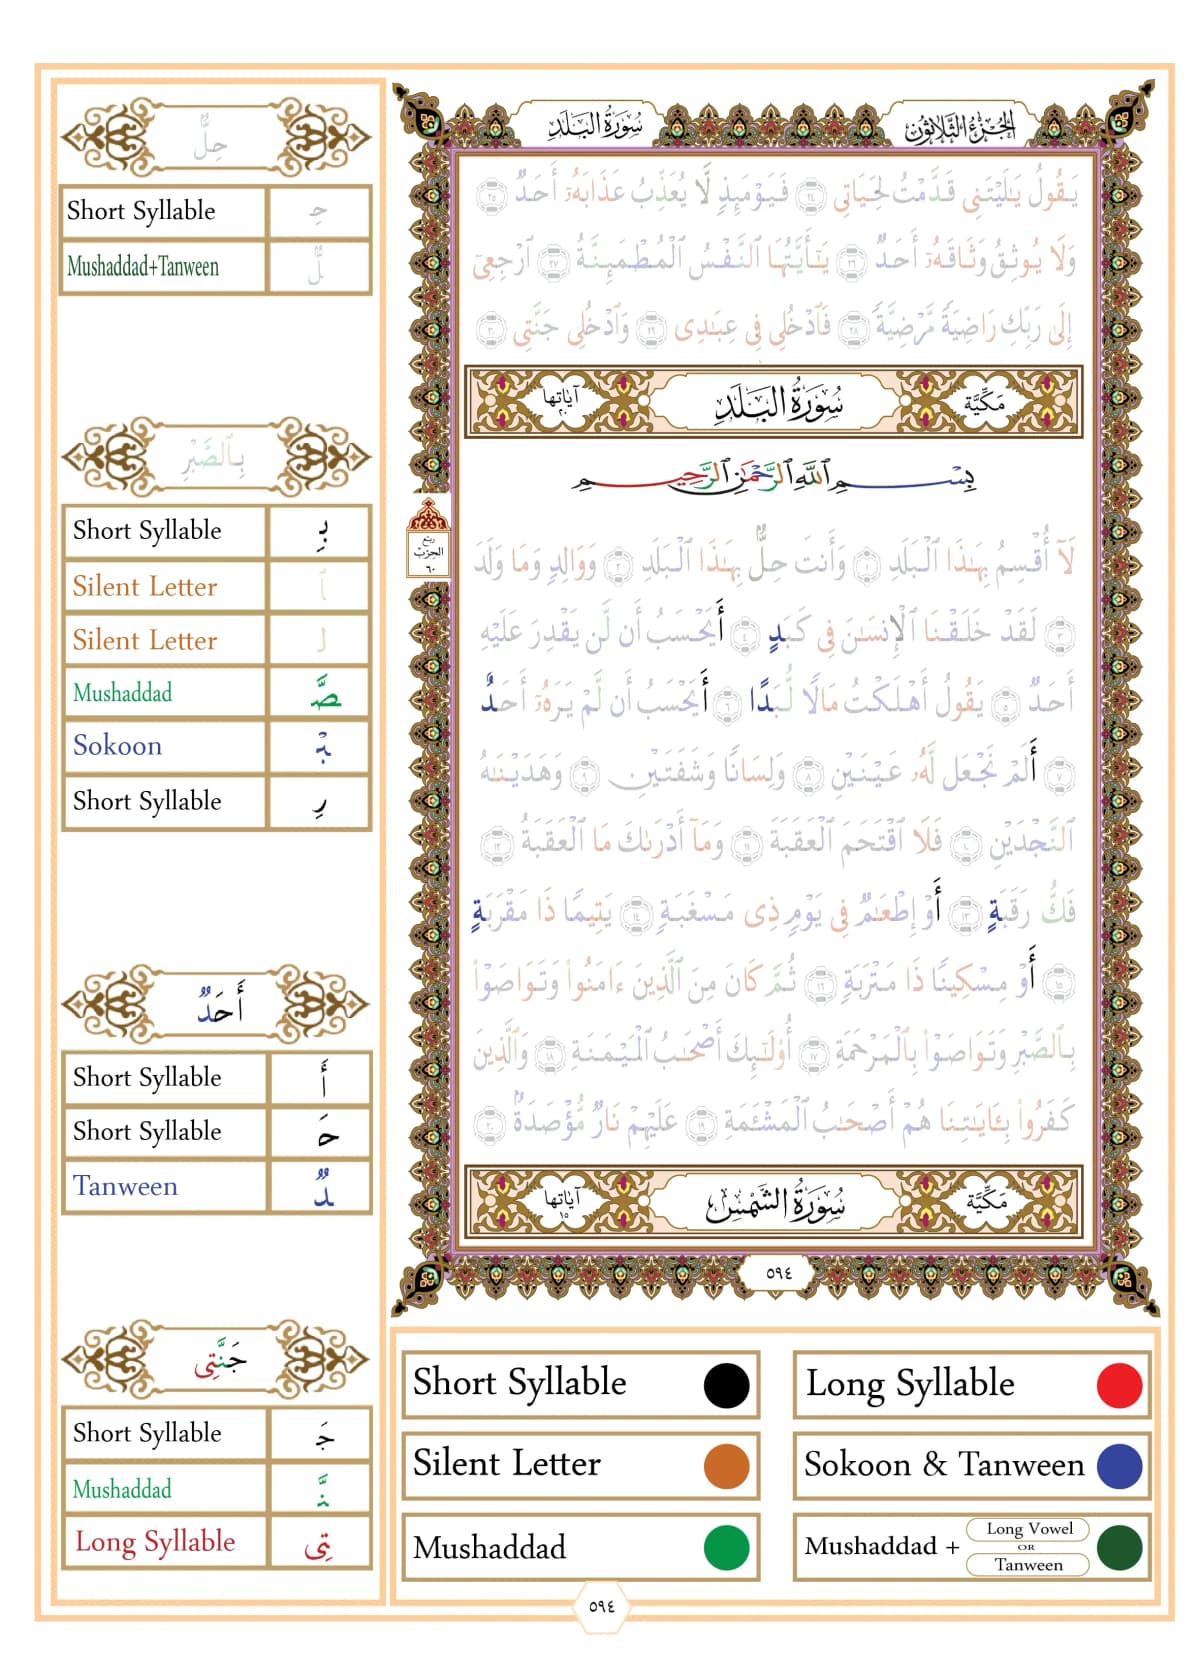 الجزء الثلاثون
سورة البلد
يَقُولُ يَٰلَيْتَنِى قَدَّمْتُ لِحَيَاتِى ٢٤ فَيَوْمَئِذٍ لَّا يُعَذِّبُ عَذَابَهُۥٓ أَحَدٌ ٢٥
وَلَا يُوثِقُ وَثَاقَهُۥٓ أَحَدٌ ٢٦ يَٰٓأَيَّتُهَا ٱلنَّفْسُ ٱلْمُطْمَئِنَّةُ ٢٧ ٱرْجِعِىٓ
إِلَىٰ رَبِّكِ رَاضِيَةً مَّرْضِيَّةً ٢٨ فَٱدْخُلِى فِى عِبَٰدِى ٢٩ وَٱدْخُلِى جَنَّتِى ٣٠
مَكِّيَّة سُورَةُ البَلَدِ آياتها ٢٠
بِسْمِ ٱللَّهِ ٱلرَّحْمَٰنِ ٱلرَّحِيمِ
لَآ أُقْسِمُ بِهَٰذَا ٱلْبَلَدِ ١ وَأَنتَ حِلٌّۢ بِهَٰذَا ٱلْبَلَدِ ٢ وَوَالِدٍ وَمَا وَلَدَ
٣ لَقَدْ خَلَقْنَا ٱلْإِنسَٰنَ فِى كَبَدٍ ٤ أَيَحْسَبُ أَن لَّن يَقْدِرَ عَلَيْهِ
أَحَدٌ ٥ يَقُولُ أَهْلَكْتُ مَالًا لُّبَدًا ٦ أَيَحْسَبُ أَن لَّمْ يَرَهُۥٓ أَحَدٌ
٧ أَلَمْ نَجْعَل لَّهُۥ عَيْنَيْنِ ٨ وَلِسَانًا وَشَفَتَيْنِ ٩ وَهَدَيْنَٰهُ
ٱلنَّجْدَيْنِ ١٠ فَلَا ٱقْتَحَمَ ٱلْعَقَبَةَ ١١ وَمَآ أَدْرَىٰكَ مَا ٱلْعَقَبَةُ ١٢
فَكُّ رَقَبَةٍ ١٣ أَوْ إِطْعَٰمٌ فِى يَوْمٍ ذِى مَسْغَبَةٍ ١٤ يَتِيمًا ذَا مَقْرَبَةٍ
١٥ أَوْ مِسْكِينًا ذَا مَتْرَبَةٍ ١٦ ثُمَّ كَانَ مِنَ ٱلَّذِينَ ءَامَنُوا۟ وَتَوَاصَوْا۟
بِٱلصَّبْرِ وَتَوَاصَوْا۟ بِٱلْمَرْحَمَةِ ١٧ أُو۟لَٰٓئِكَ أَصْحَٰبُ ٱلْمَيْمَنَةِ ١٨ وَٱلَّذِينَ
كَفَرُوا۟ بِـَٔايَٰتِنَا هُمْ أَصْحَٰبُ ٱلْمَشْـَٔمَةِ ١٩ عَلَيْهِمْ نَارٌ مُّؤْصَدَةٌۢ ٢٠
مَكِّيَّة سُورَةُ الشَّمْسِ آياتها ١٥
٥٩٤
ربع
الحزب
٦٠
حِلٌّۢ
Short Syllable حِـ
Mushaddad+Tanween لٌّۢ
بِٱلصَّبْرِ
Short Syllable بِـ
Silent Letter ٱ
Silent Letter لـ
Mushaddad صَّـ
Sokoon ـبْـ
Short Syllable رِ
أَحَدٌ
Short Syllable أَ
Short Syllable حَـ
Tanween ـدٌ
جَنَّتِى
Short Syllable جَـ
Mushaddad نَّـ
Long Syllable تِى
Short Syllable
Long Syllable
Silent Letter
Sokoon & Tanween
Mushaddad
Mushaddad + Long Vowel OR Tanween
٥٩٤